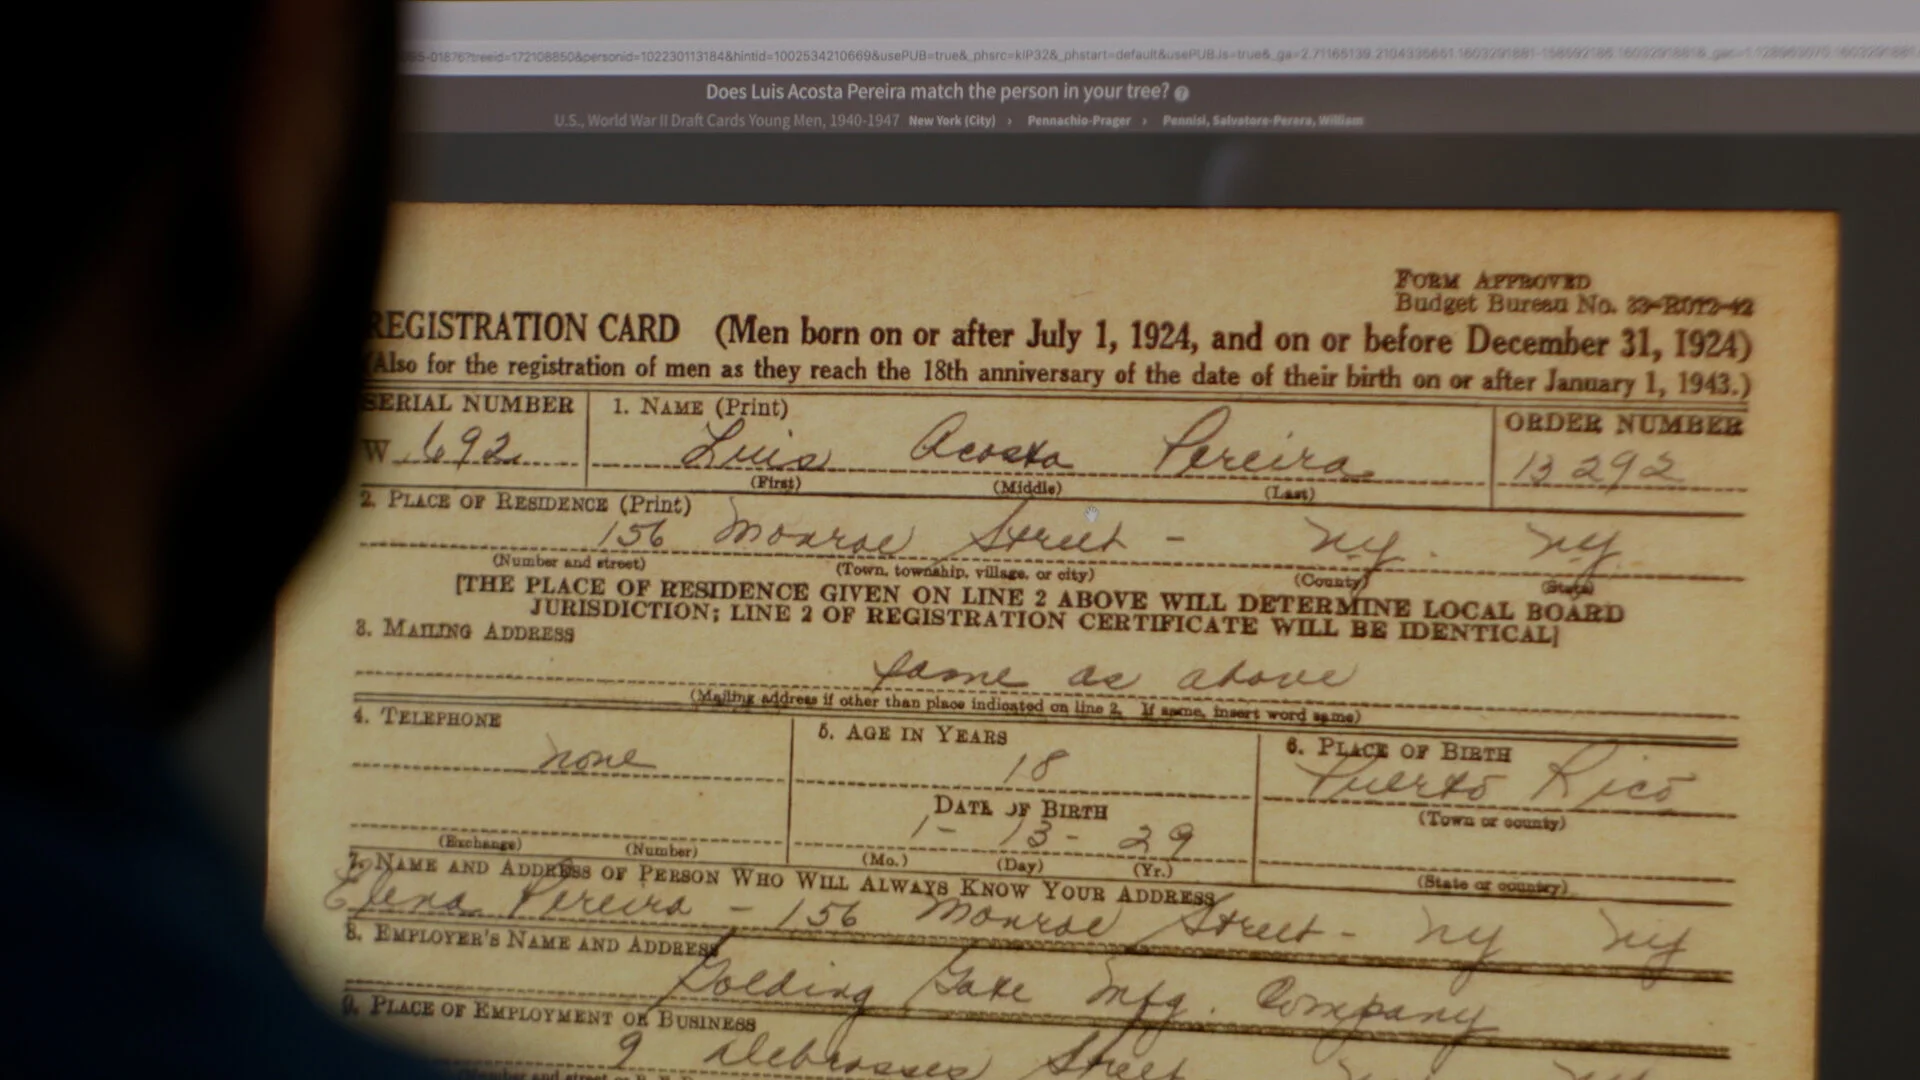 Does Luis Acosta Pereira match the person in your tree?
U.S., World War II Draft Cards Young Men, 1940-1947 New York (City) › Pennachio-Prager › Pennisi, Salvatore-Perera, William
FORM APPROVED
Budget Bureau No. 33-R012-42
REGISTRATION CARD (Men born on or after July 1, 1924, and on or before December 31, 1924)
(Also for the registration of men as they reach the 18th anniversary of the date of their birth on or after January 1, 1943.)
SERIAL NUMBER 1. NAME (Print) ORDER NUMBER
W 692 Luis Acosta Pereira 13292
(First) (Middle) (Last)
2. PLACE OF RESIDENCE (Print)
156 Monroe Street - NY. NY.
(Number and street) (Town, township, village, or city) (County) (State)
[THE PLACE OF RESIDENCE GIVEN ON LINE 2 ABOVE WILL DETERMINE LOCAL BOARD
JURISDICTION; LINE 2 OF REGISTRATION CERTIFICATE WILL BE IDENTICAL]
3. MAILING ADDRESS
same as above
(Mailing address if other than place indicated on line 2. If same, insert word same)
4. TELEPHONE 5. AGE IN YEARS 6. PLACE OF BIRTH
none 18 Puerto Rico
DATE OF BIRTH (Town or county)
1 - 13 - 29
(Exchange) (Number) (Mo.) (Day) (Yr.) (State or country)
7. NAME AND ADDRESS OF PERSON WHO WILL ALWAYS KNOW YOUR ADDRESS
Elena Pereira - 156 Monroe Street - NY NY
8. EMPLOYER'S NAME AND ADDRESS
Mfg. Company
9. PLACE OF EMPLOYMENT OR BUSINESS
9 Street